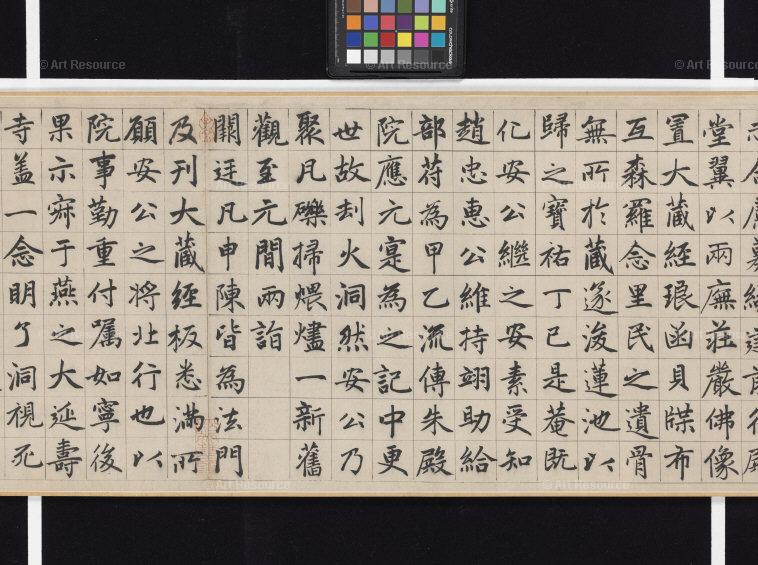 © Art Resource
© Art Resource
堂翼以兩廡莊嚴佛像
置大藏經琅函貝牒布
互森羅念里民之遺骨
無所於藏遂浚蓮池以
歸之寶祐丁巳是菴既
化安公繼之安素受知
趙忠惠公維持翊助給
部苻為甲乙流傳朱殿
院應元寔為之記中更
世故刦火洞然安公乃
聚凡礫掃煨燼一新舊
觀至元間兩詣
闕廷凡申陳皆為法門
及刊大藏經板悉滿所
願安公之將北行也以
院事勤重付囑如寧後
果示寂于燕之大延壽
寺盖一念明了洞視死
© Art Resource
© Art Resource
© Art Resource